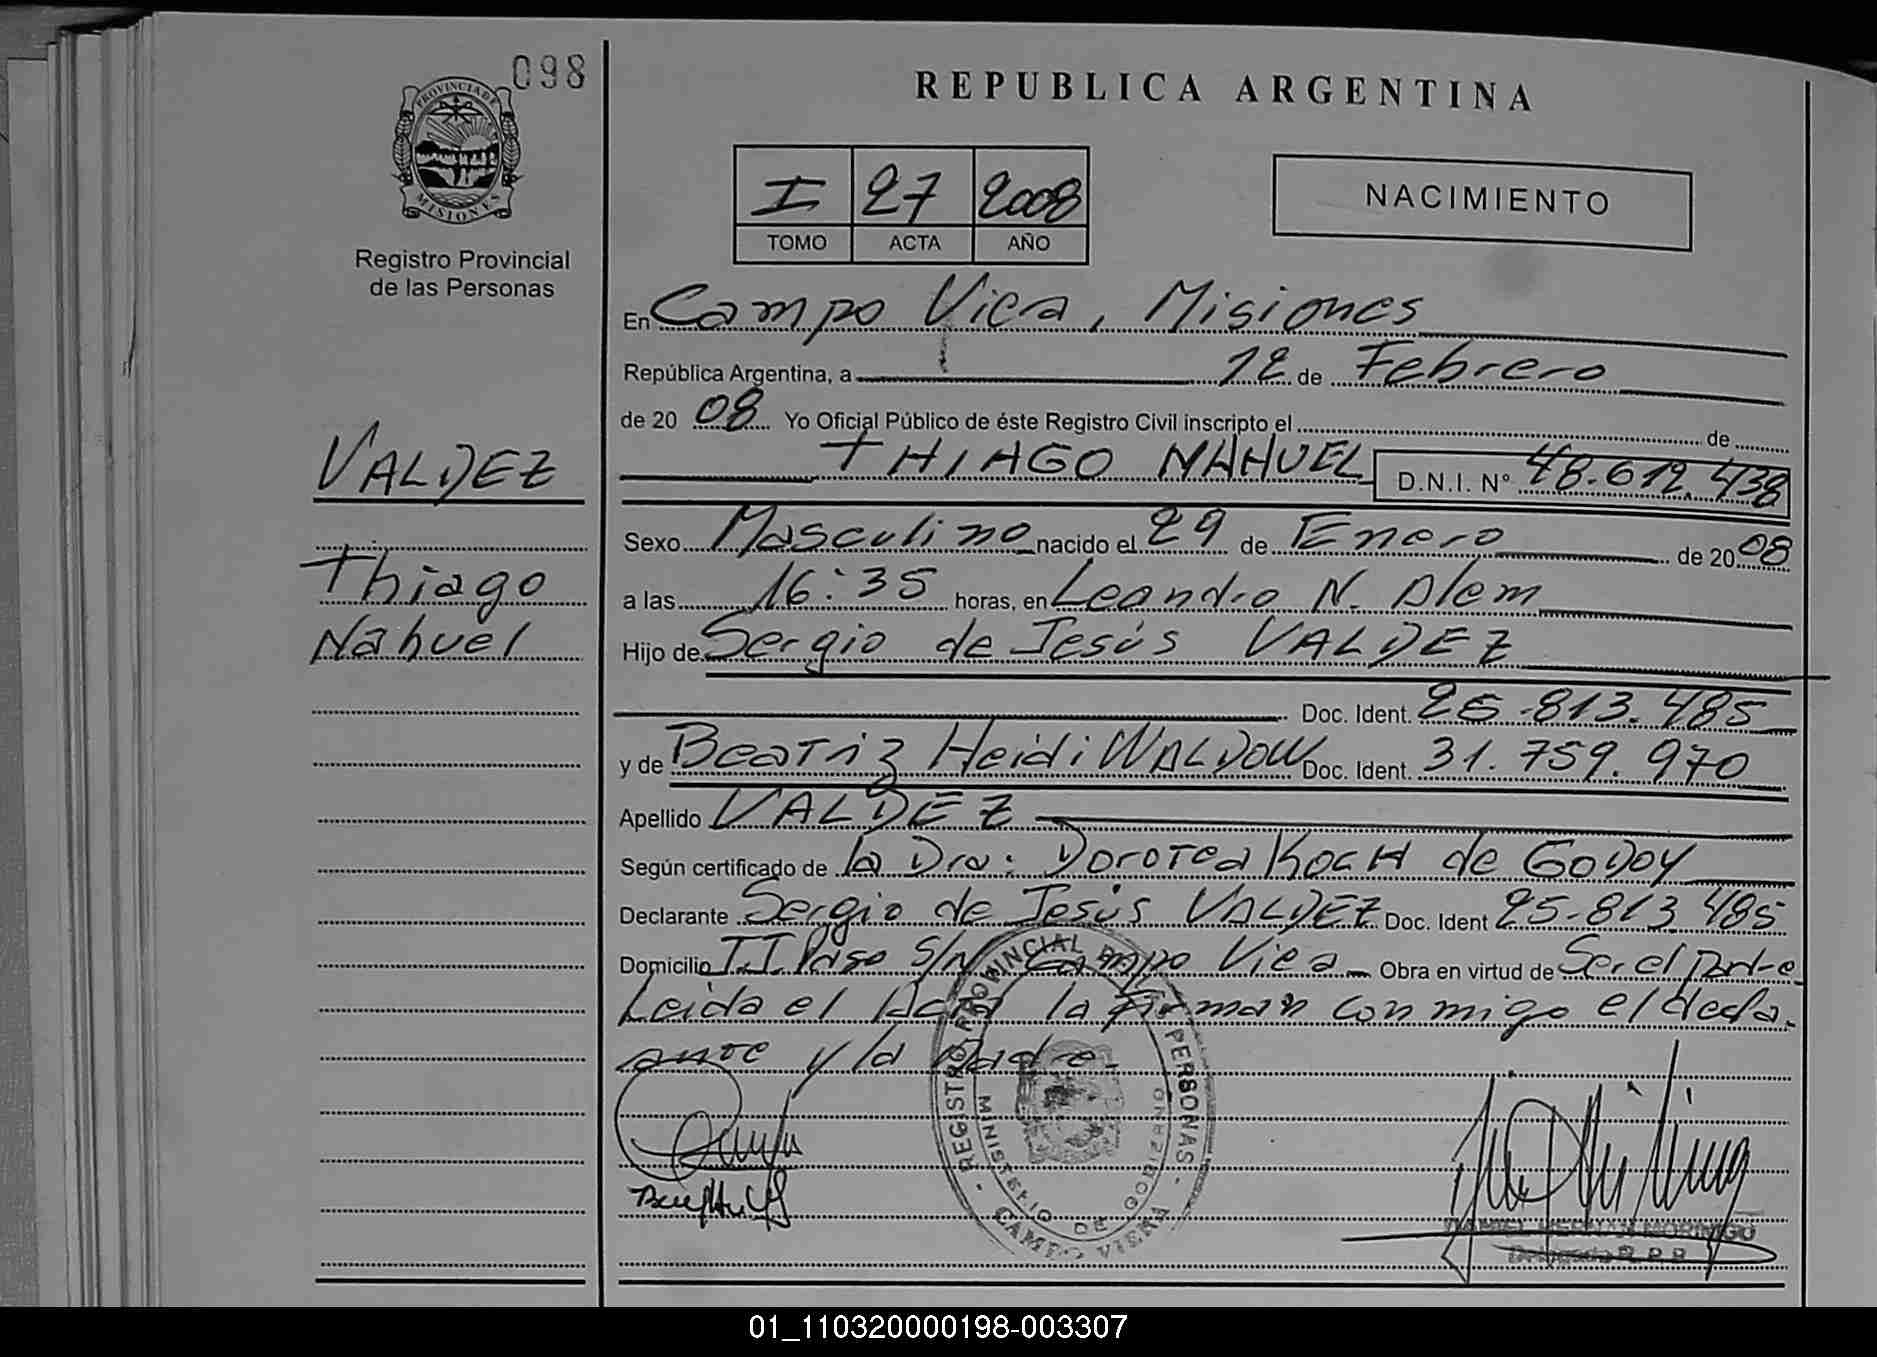 098
PROVINCIA DE
MISIONES
Registro Provincial
de las Personas
REPUBLICA ARGENTINA
I 27 2008
TOMO ACTA AÑO
NACIMIENTO
En Campo Viera, Misiones
República Argentina, a 12 de Febrero
de 20 08 Yo Oficial Público de éste Registro Civil inscripto el de
THIAGO NAHUEL D.N.I. Nº 48.612.438
VALDEZ
Thiago
Nahuel
Sexo Masculino nacido el 29 de Enero de 20 08
a las 16:35 horas, en Leandro N. Alem
Hijo de Sergio de Jesús VALDEZ
Doc. Ident. 25.813.485
y de Beatriz Heidi WALDOW Doc. Ident. 31.759.970
Apellido VALDEZ
Según certificado de la Dra: Dorotea KOCH de GODOY
Declarante Sergio de Jesús VALDEZ Doc. Ident 25.813.485
Domicilio J.J. Paso S/N Campo Viera Obra en virtud de Ser el Padre
Leida el Acta la firman conmigo el decla.
ante y la Madre.
REGISTRO PROVINCIAL PERSONAS
MINISTERIO DE GOBIERNO
CAMPO VIERA
DANIEL HERNAN MORINIGO
Delegado R.P.P.
01_110320000198-003307